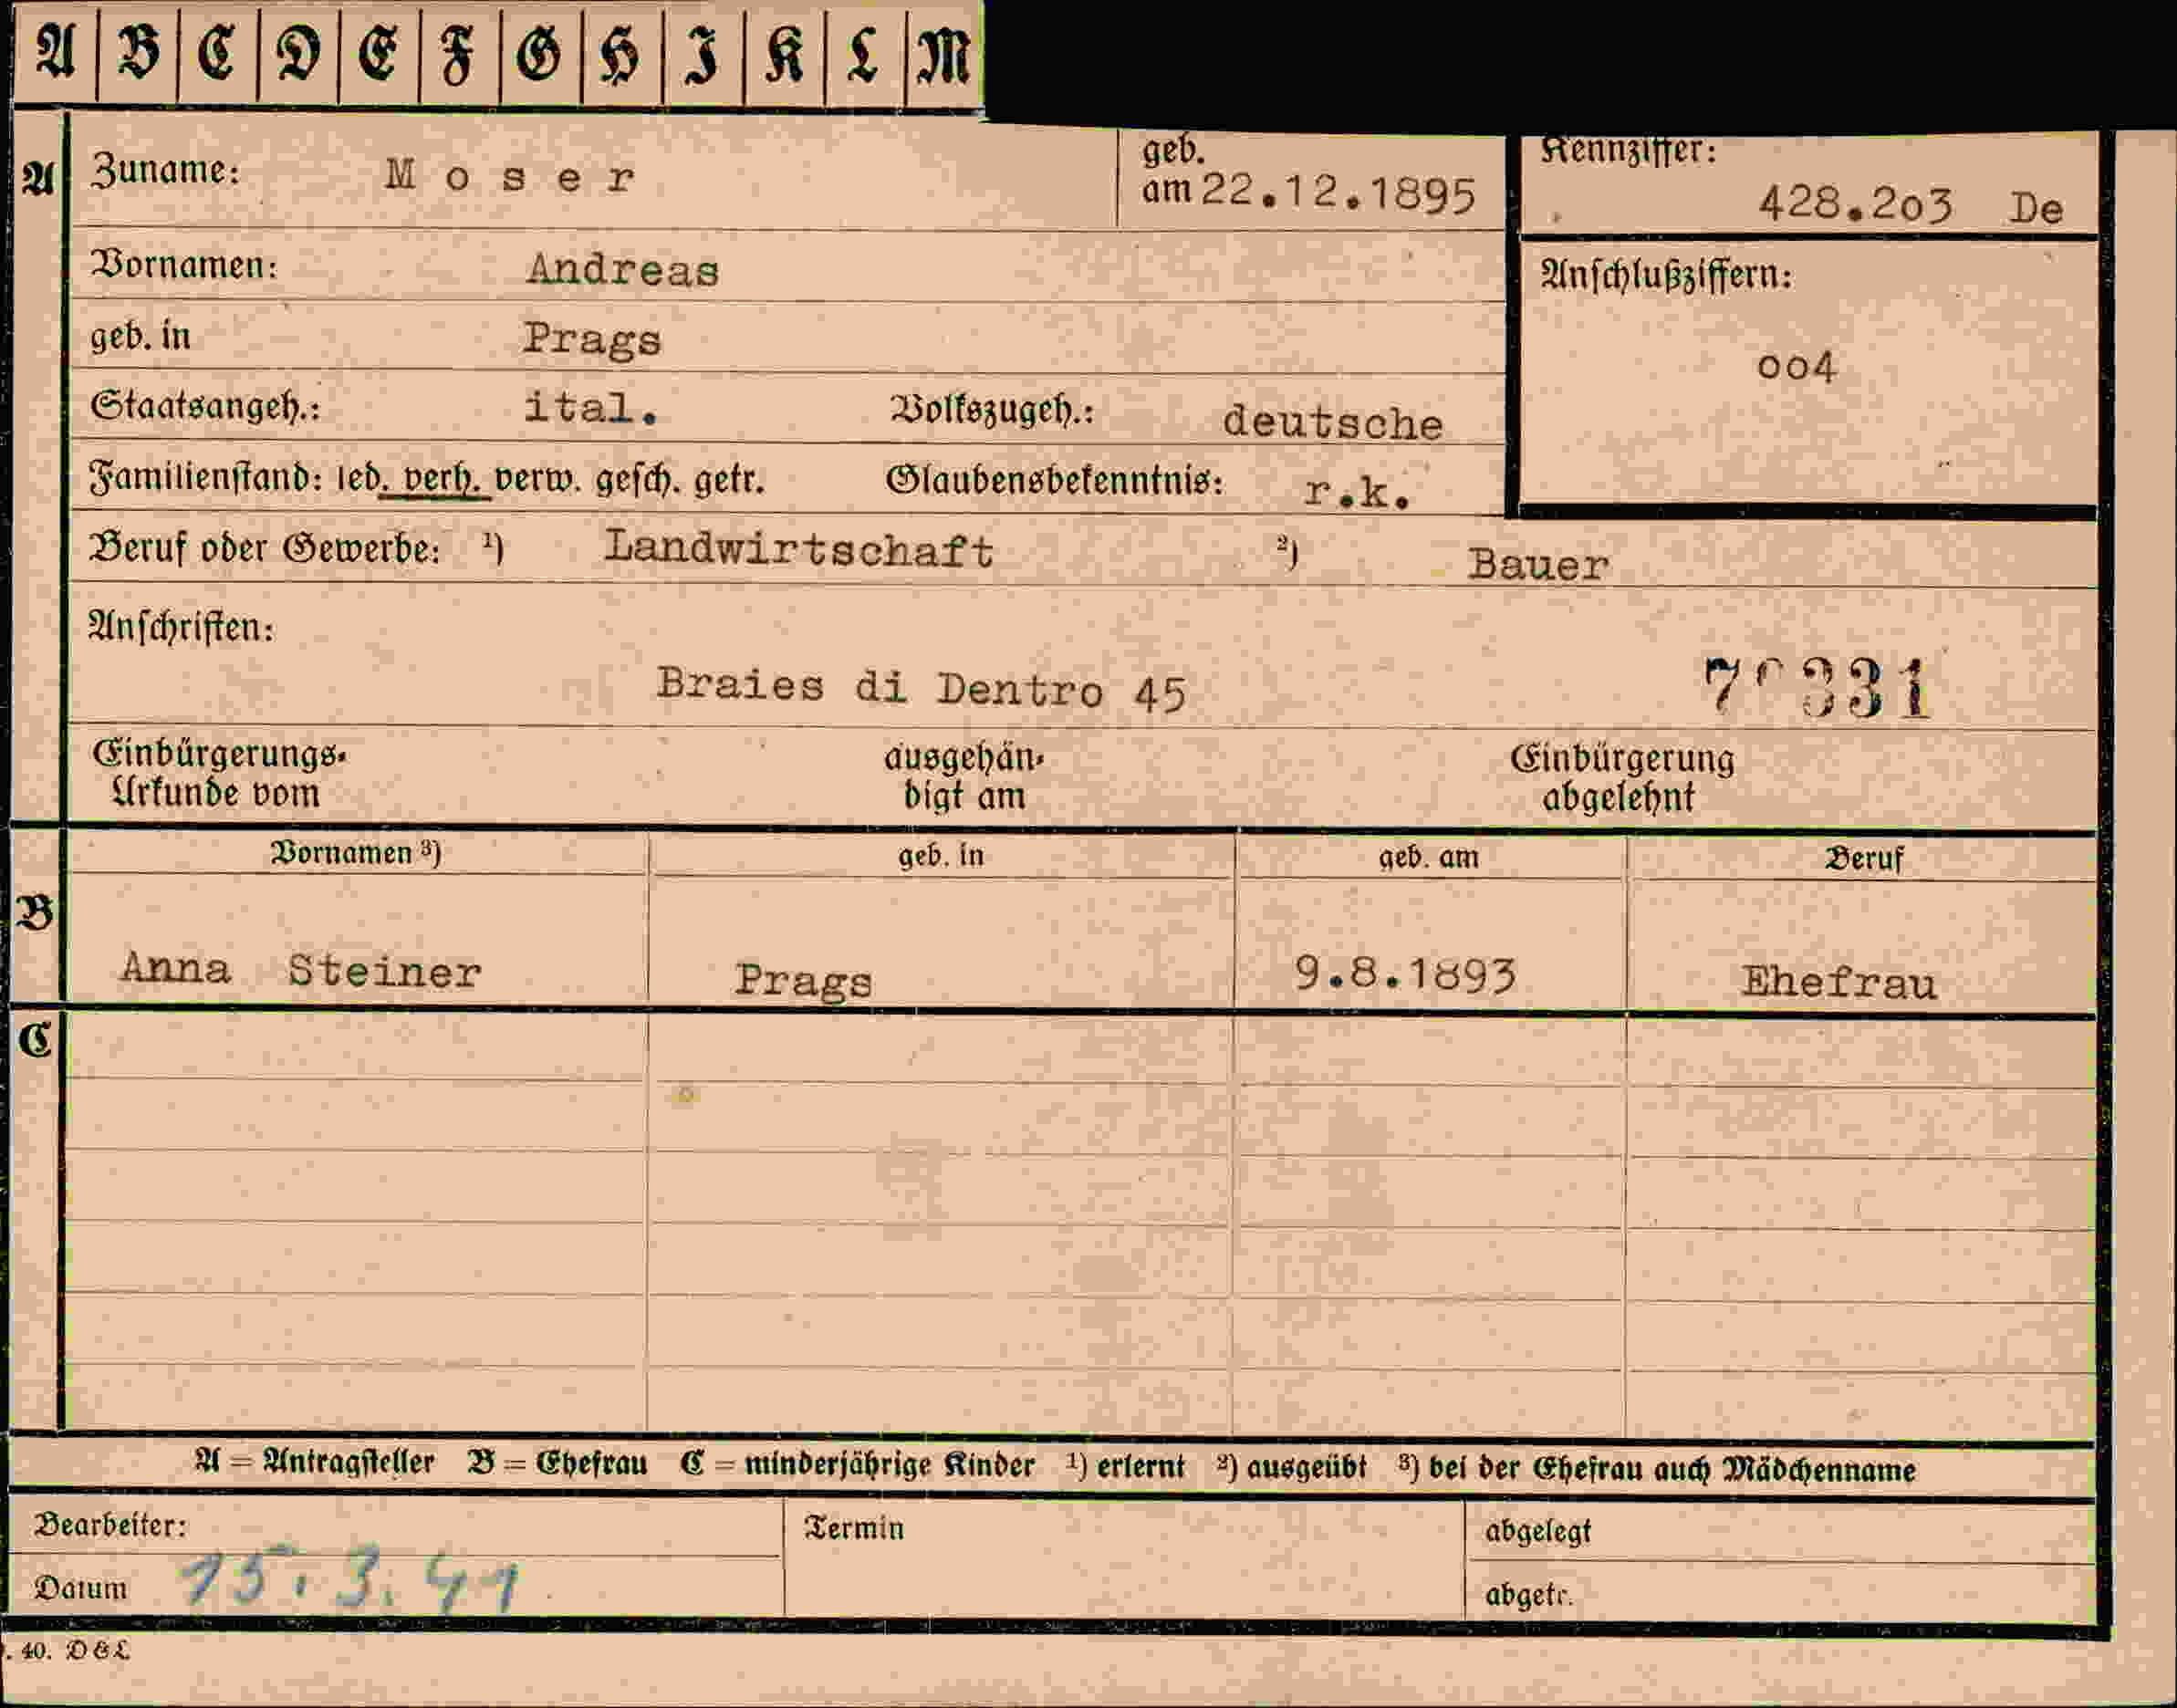 A B C D E F G H I K L M
A Zuname: Moser geb. am 22.12.1895 Kennziffer: 428.2o3 De
Vornamen: Andreas Anschlußziffern:
geb. in Prags oo4
Staatsangeh.: ital. Volkszugeh.: deutsche
Familienstand: led. verh. verw. gesch. getr. Glaubensbekenntnis: r.k.
Beruf oder Gewerbe: 1) Landwirtschaft 2) Bauer
Anschriften:
Braies di Dentro 45
Einbürgerungs- ausgehän- Einbürgerung
Urkunde vom digt am abgelehnt
Vornamen 3) geb. in geb. am Beruf
B
Anna Steiner Prags 9.8.1893 Ehefrau
C
A = Antragsteller B = Ehefrau C = minderjährige Kinder 1) erlernt 2) ausgeübt 3) bei der Ehefrau auch Mädchenname
Bearbeiter: Termin abgelegt
Datum 15.3.41 abgetr.
. 40. D&L